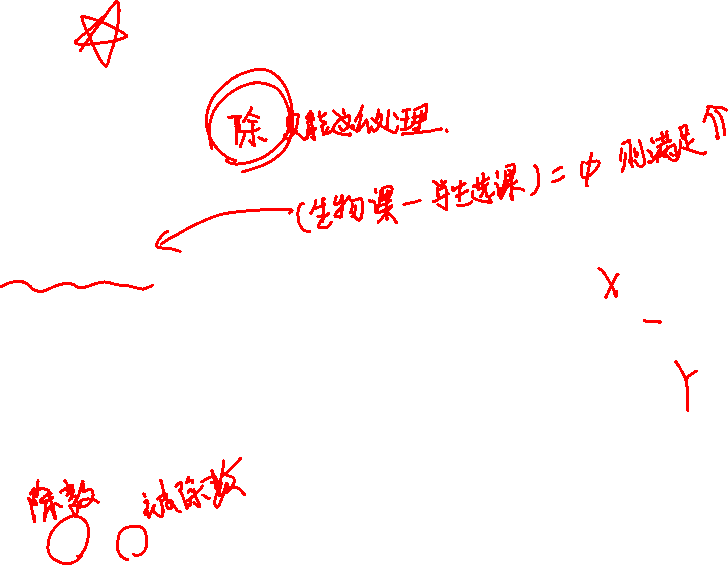 除 只能这么处理.
(生物课－学生选课)=φ 则满足
X
－
Y
除数 被除数